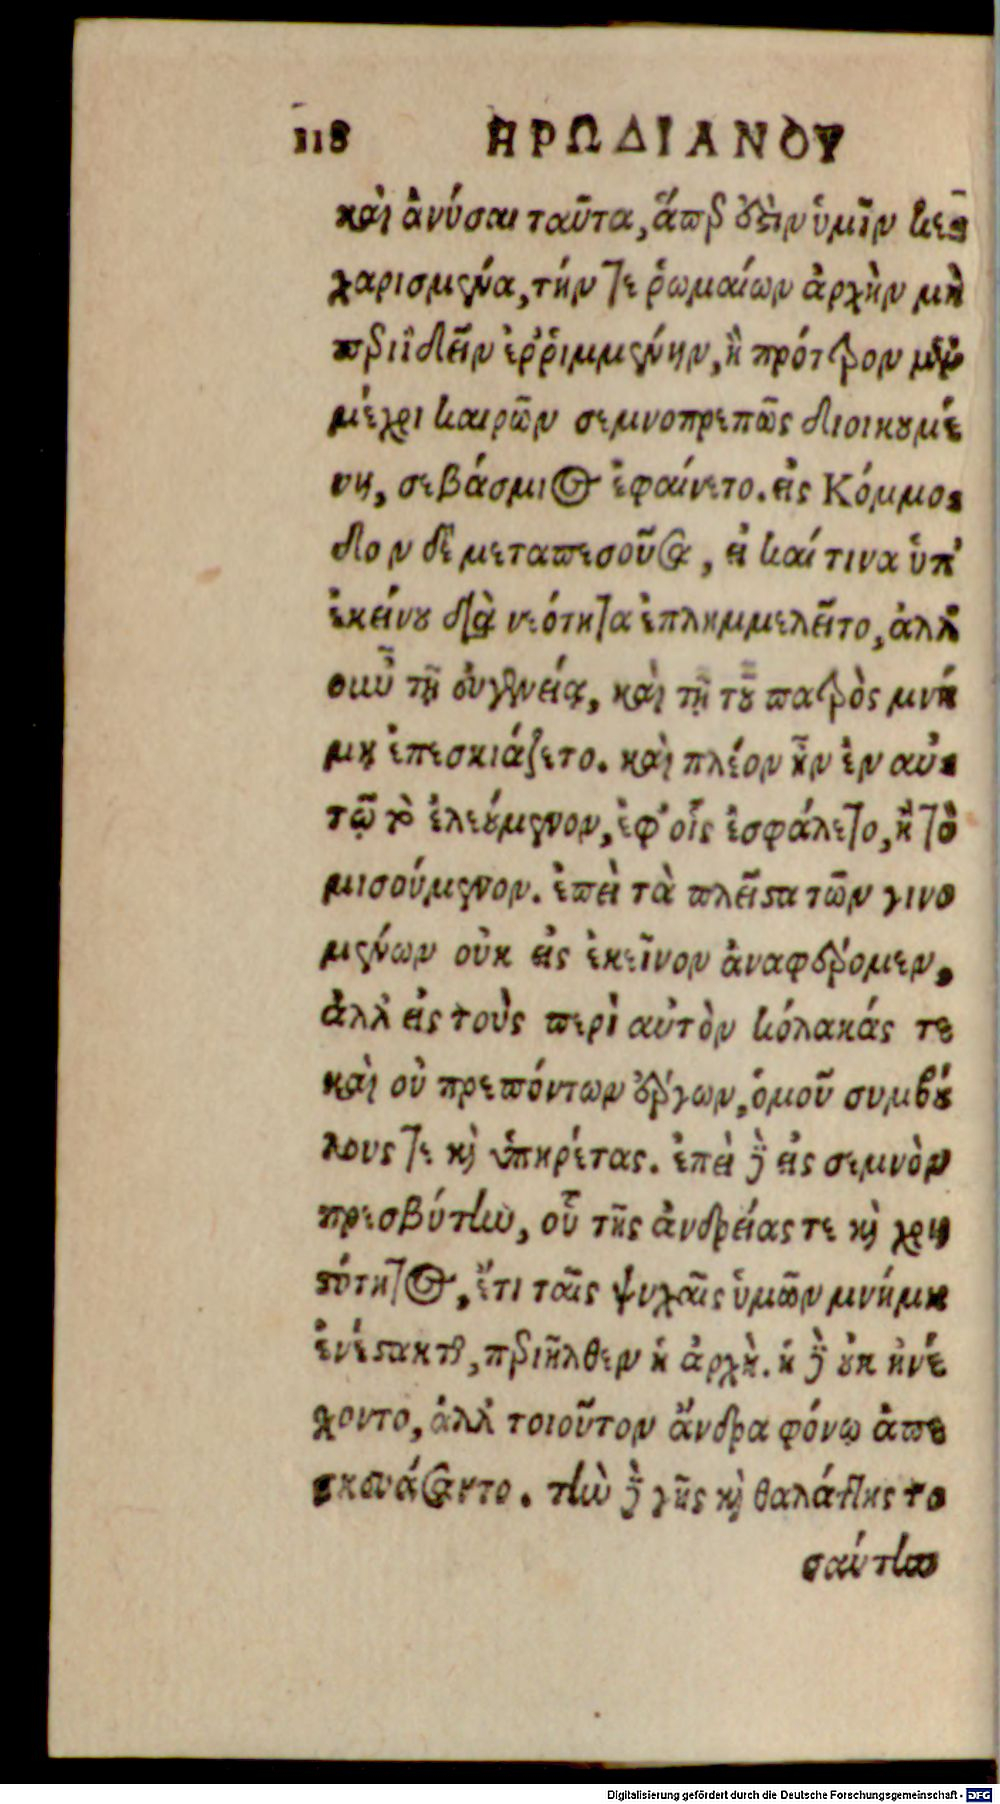 118 ΗΡΩΔΙΑΝΟΥ
καὶ ἀνύσαι ταῦτα, ἅπερ ἐστὶν ὑμῖν κε-
χαρισμένα, τήν τε ῥωμαίων ἀρχὴν μὴ
περιϊδεῖν ἐῤῥιμμένην, ἣ πρότερον μὲν
μέχρι καιρῶν σεμνοπρεπῶς διοικουμέ
νη, σεβάσμιος ἐφαίνετο. εἰς Κόμμο-
δον δὲ μεταπεσοῦσα, εἰ καί τινα ὑπ'
ἐκείνου διὰ νεότητα ἐπλημμελεῖτο, ἀλλ'
οὖν τῇ εὐγενείᾳ, καὶ τῇ τοῦ πατρὸς μνή
μῃ ἐπεσκιάζετο. καὶ πλέον ἦν ἐν αὐ-
τῷ τὸ ἐλεούμενον, ἐφ' οἷς ἐσφάλετο, ἢ τὸ
μισούμενον. ἐπεὶ τὰ πλεῖστα τῶν γινο
μένων οὐκ εἰς ἐκεῖνον ἀναφέρομεν,
ἀλλ' εἰς τοὺς περὶ αὐτὸν κόλακάς τε
καὶ οὐ πρεπόντων ἔργων, ὁμοῦ συμβού
λους τε καὶ ὑπηρέτας. ἐπεὶ δὲ εἰς σεμνὸν
πρεσβύτην, οὗ τῆς ἀνδρείας τε καὶ χρη
στότητος, ἔτι ταῖς ψυχαῖς ὑμῶν μνήμη
ἐνέστακτο, περιῆλθεν ἡ ἀρχὴ. ἡ δὲ οὐκ ἠνέ
χοντο, ἀλλὰ τοιοῦτον ἄνδρα φόνῳ ἀπε
σκευάσαντο. τὴν δὲ γῆς καὶ θαλάττης το
σαύτην
Digitalisierung gefördert durch die Deutsche Forschungsgemeinschaft - DFG